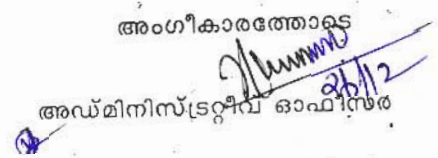 അംഗീകാരത്തോടെ
അഡ്മിനിസ്ട്രേറ്റീവ് ഓഫീസർ